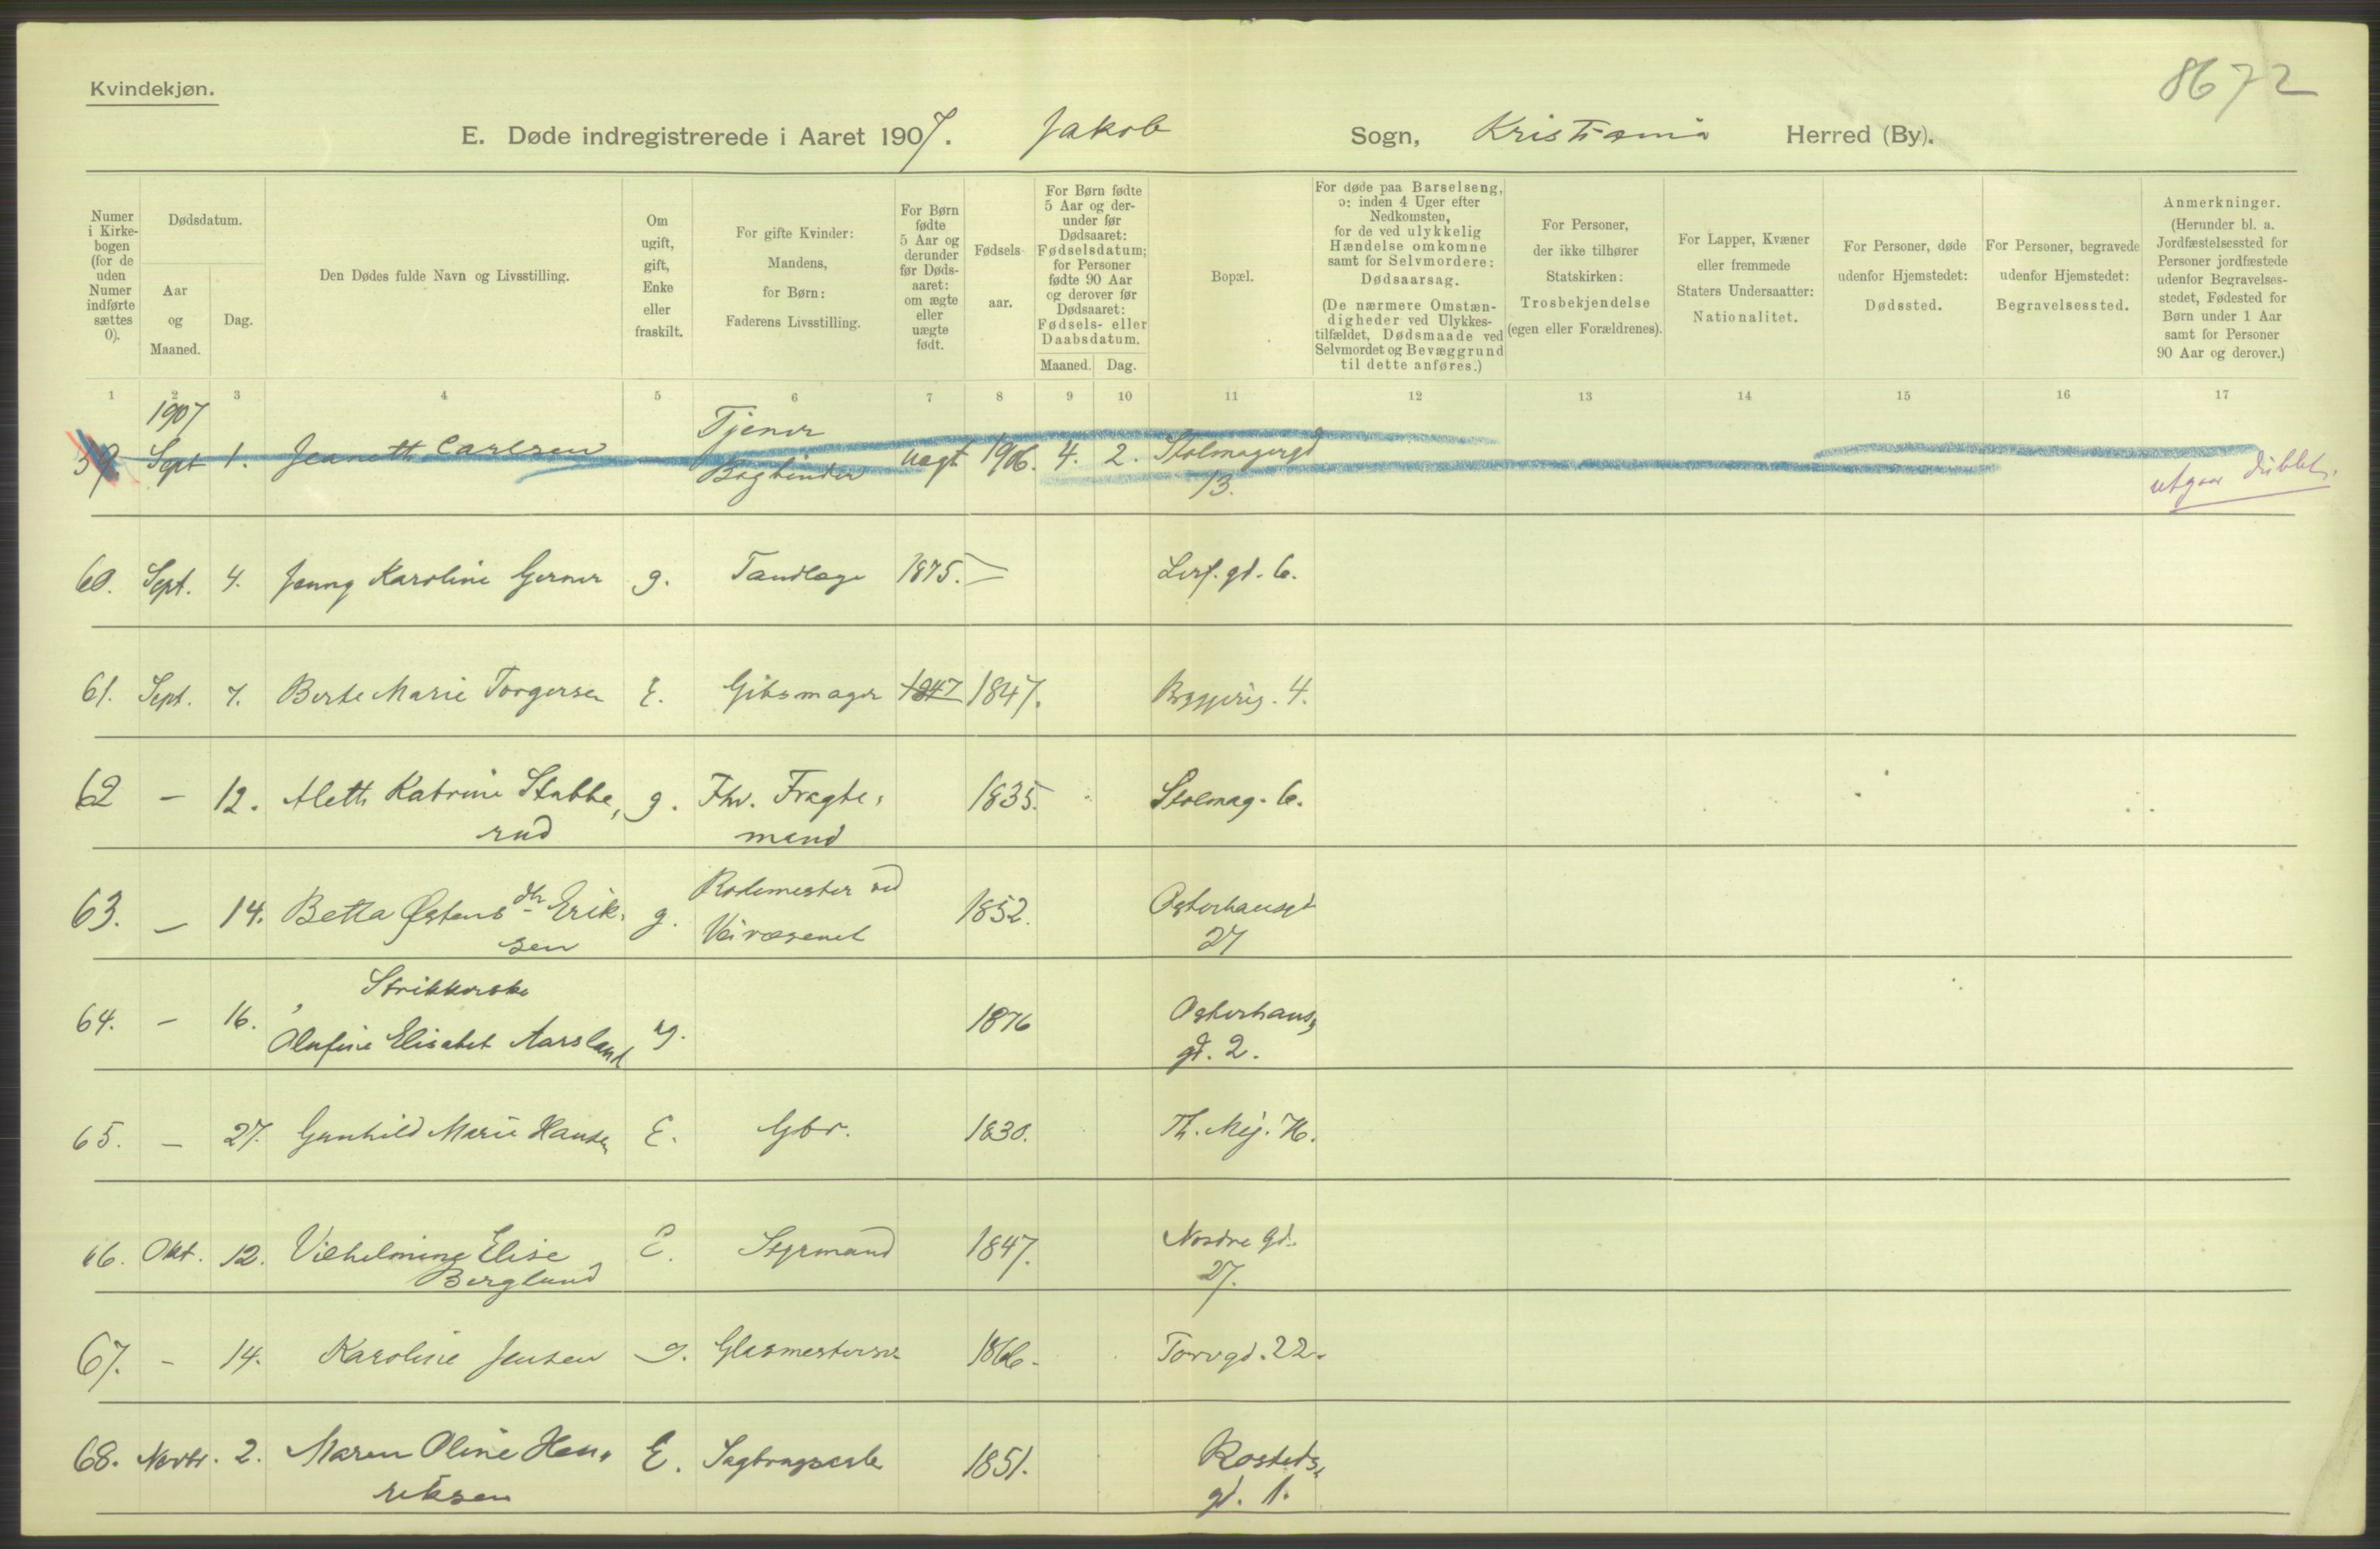 Kvindekjøn.
8672
E. Døde indregistrerede i Aaret 1907. Jakob Sogn, Kristiania Herred (By).
Numer i Kirkebogen (for de uden Numer indførte sættes 0).
Dødsdatum.
Aar og Maaned.
Dag.
Den Dødes fulde Navn og Livsstilling.
Om ugift, gift, Enke eller fraskilt.
For gifte Kvinder: Mandens, for Børn: Faderens Livsstilling.
For Børn fødte 5 Aar og derunder før Dødsaaret: om ægte eller uægte født.
Fødselsaar.
For Børn fødte 5 Aar og derunder før Dødsaaret: Fødselsdatum; for Personer fødte 90 Aar og derover før Dødsaaret: Fødsels- eller Daabsdatum.
Maaned. Dag.
Bopæl.
For døde paa Barselseng, ɔ: inden 4 Uger efter Nedkomsten, for de ved ulykkelig Hændelse omkomne samt for Selvmordere: Dødsaarsag. (De nærmere Omstændigheder ved Ulykkestilfældet, Dødsmaade ved Selvmordet og Bevæggrund til dette anføres.)
For Personer, der ikke tilhører Statskirken: Trosbekjendelse (egen eller Forældrenes).
For Lapper, Kvæner eller fremmede Staters Undersaatter: Nationalitet.
For Personer, døde udenfor Hjemstedet: Dødssted.
For Personer, begravede udenfor Hjemstedet: Begravelsessted.
Anmerkninger. (Herunder bl. a. Jordfæstelsessted for Personer jordfæstede udenfor Begravelsesstedet, Fødested for Børn under 1 Aar samt for Personer 90 Aar og derover.)
1 2 3 4 5 6 7 8 9 10 11 12 13 14 15 16 17
1907 Tjener
59. Sept 1. Jeanette Carlsen Bogbinder uægt 1906. 4. 2. Stolmagergd
13. utgaar dublet.
60. Sept. 4. Jenny Karoline Gerner g. Tandlæge 1875. —
61. Sept. 7. Berte Marie Torgersen E. Gibsmager 1847 1847. Bryggerig. 4.
62 — 12. Alette Katrine Stubbe, g. Fhv. Fragte, 1835. Stolmag. 6.
rud mand
63. — 14. Betta Østens dtr Erik, g. Rodemester ved 1852. Osterhausgd
sen Veivæsenet 27
Strikkerske
64. — 16. Olufine Elisabet Aarsland ug. 1876 Osterhaus,
gd. 2.
65. — 27. Gunhild Marie Hansen E. Gbr. 1830. Th. Mej.
66. Okt. 12. Vilhelmine Elise E. Styrmand 1847. Nordre gd.
Berglund 27.
67. — 14. Karoline Jensen g. Glasmestersv. 1866. Torvgd. 22.
68. Novbr. 2. Maren Oline Hen, E. Sagbrugseier 1851. Rosteds,
riksen gd. 1.